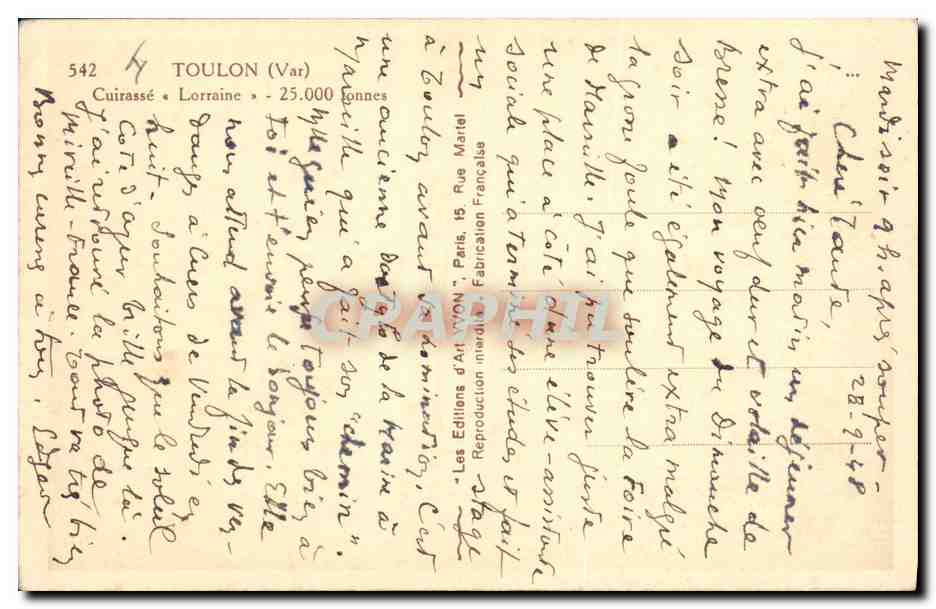 542
4
TOULON (Var)
Cuirassé « Lorraine » - 25.000 tonnes
Les Editions d'Art "YVON", Paris, 15, Rue Martel
Reproduction interdite. Fabrication Française
CPARAMA CPAPHIL
Mardi soir 9 h après souper -
28-9-48
Chère Tante,
J'ai fait hier matin un déjeuner
extra avec oeuf dur et volaille de
Bresse! Mon voyage du Dimanche
soir a été également extra malgré
la grosse foule que soulève la Foire
de Marseille. J'ai pu trouver juste
une place à côté d'une élève-assistante
sociale qui a terminé ses études et fait
un stage
à Toulon avant sa domination. C'est
une ancienne de la Mairie à
Marseille qui a fait son "chemin".
Mlle pense toujours bien à
toi et t'envoie le bonjour. Elle
nous attend avant la fin des ven-
danges à Cuers de Vendredi en
huit. Souhaitons que le soleil
Côte d'azur brille jusque là.
J'ai retrouvé la photo de
Mireille-France. Tout va très bien
Bonnes caresses à tous, Edgar